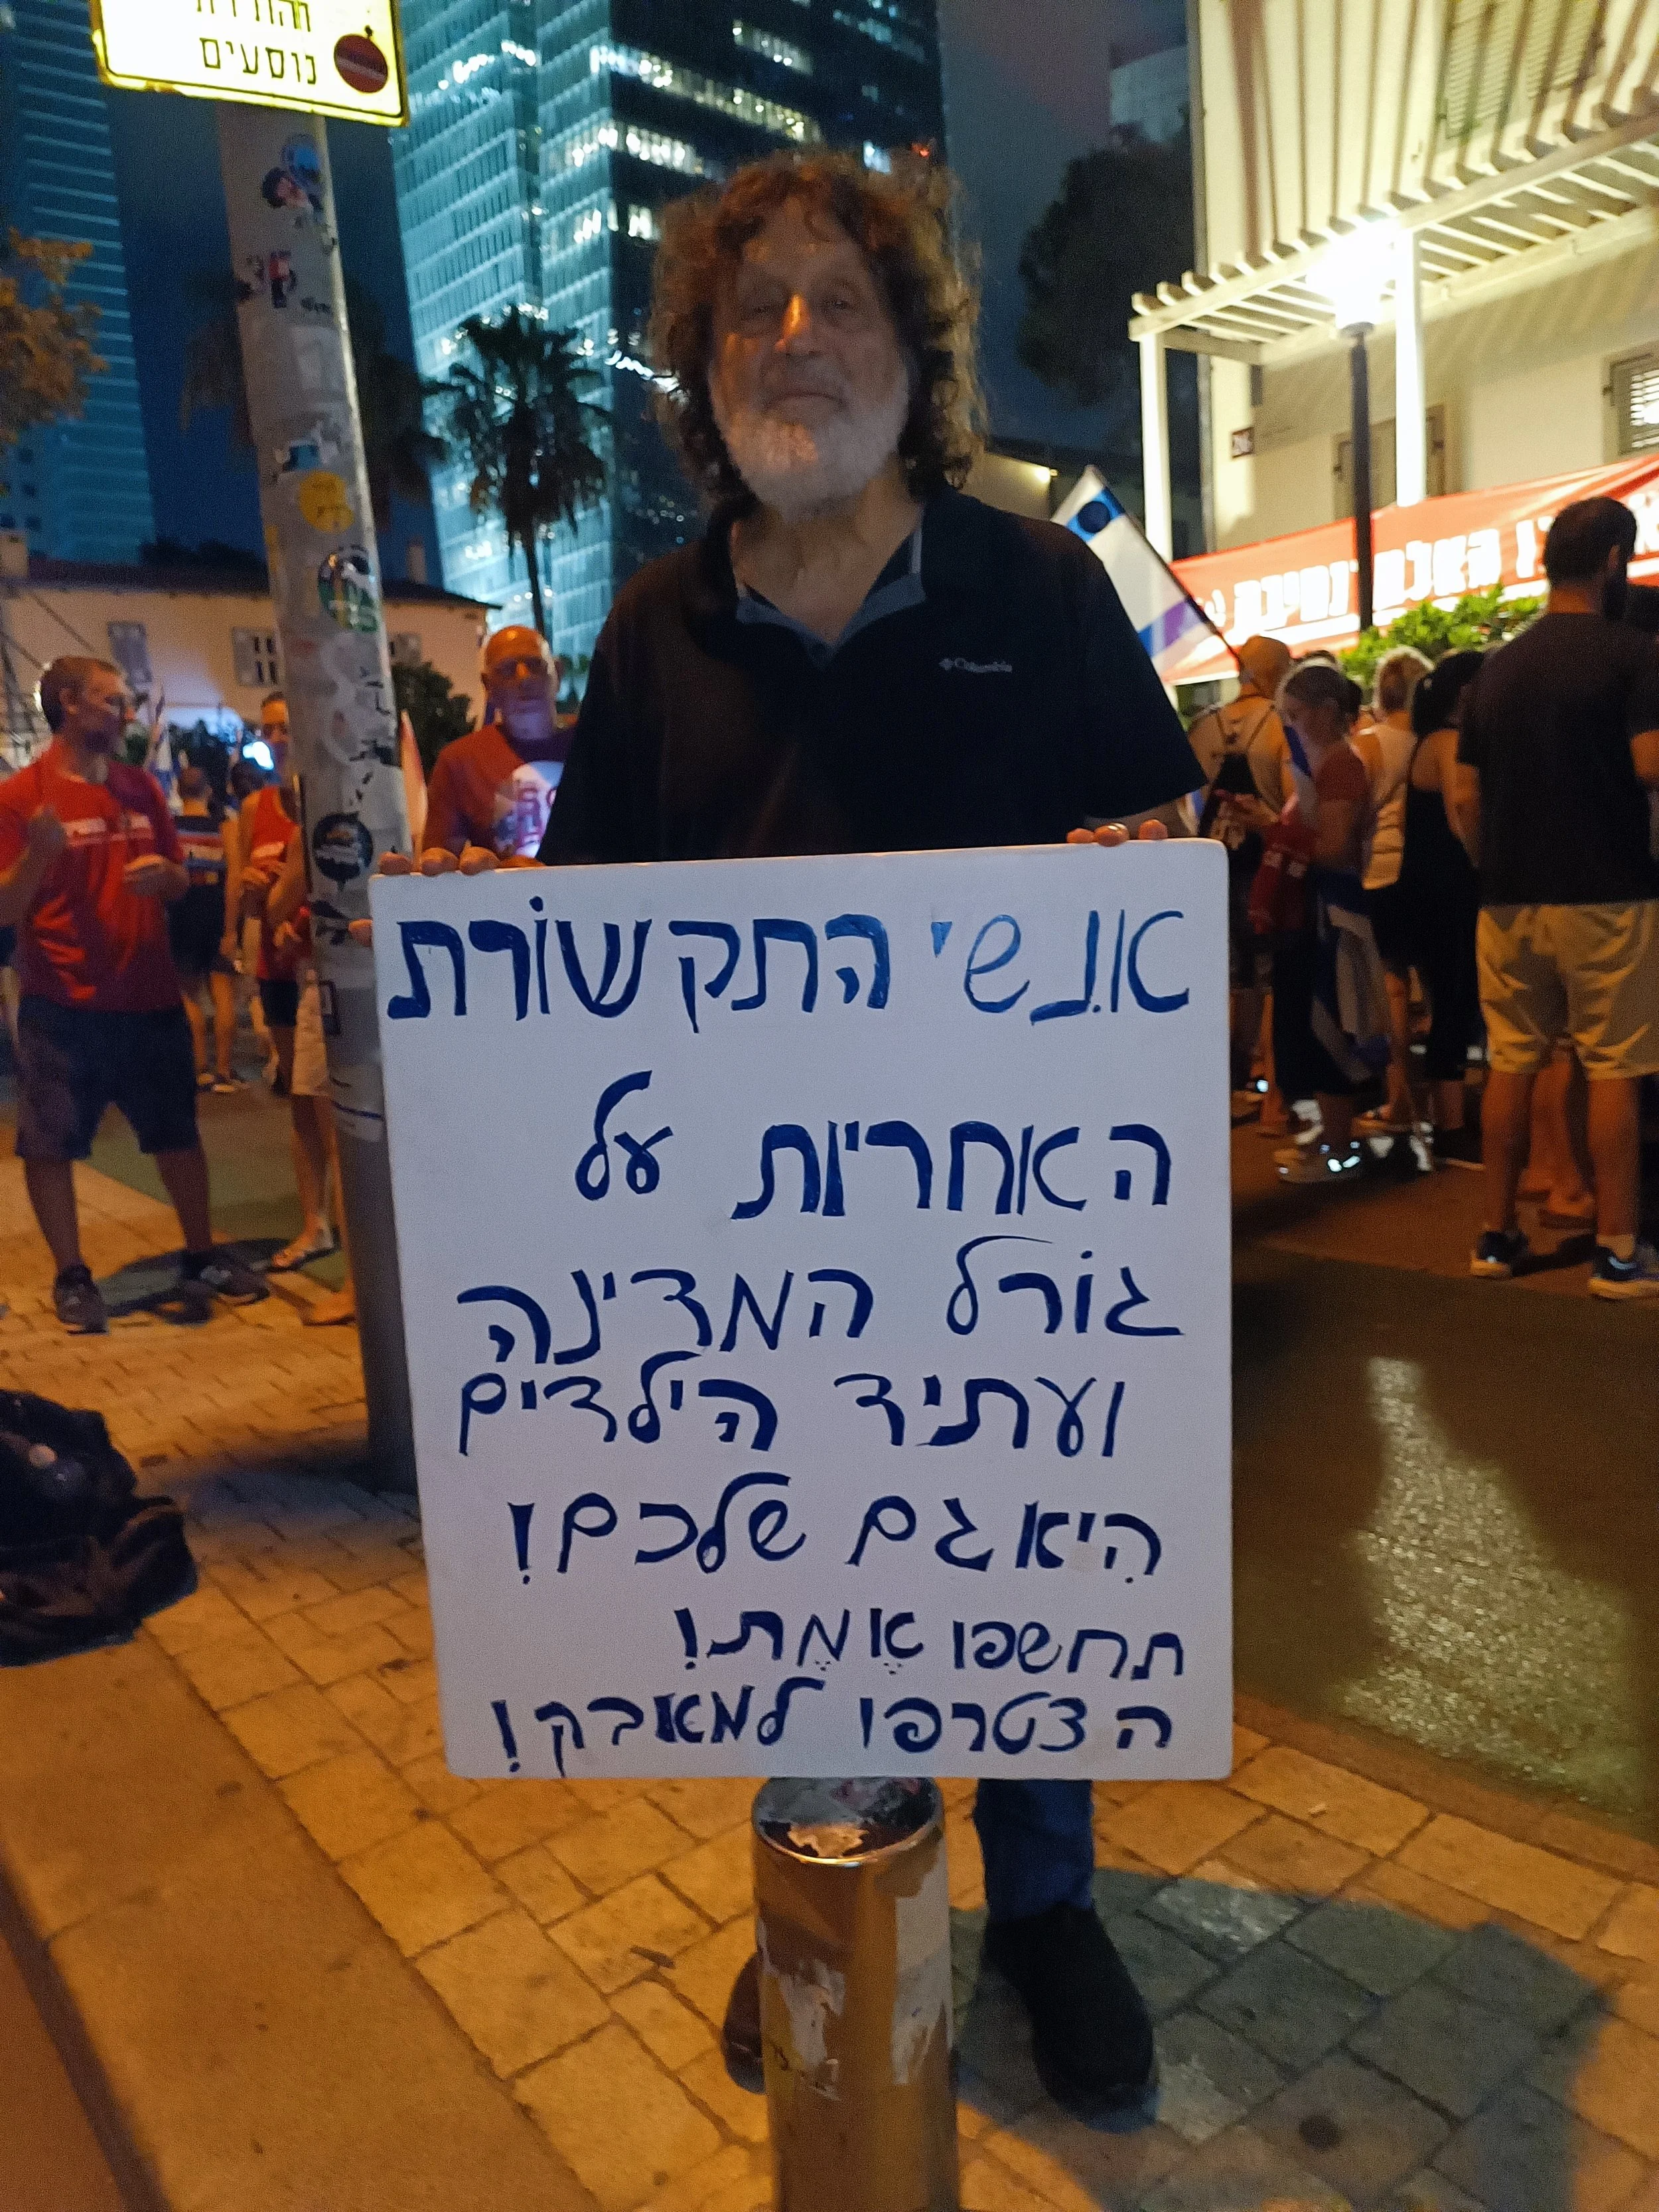 נוסעים
Columbia
אנשי התקשורת
האחריות על
גורל המדינה
ועתיד הילדים
היא גם שלכם!
תחשפו אֶמֶת!
הצטרפו למאבק!